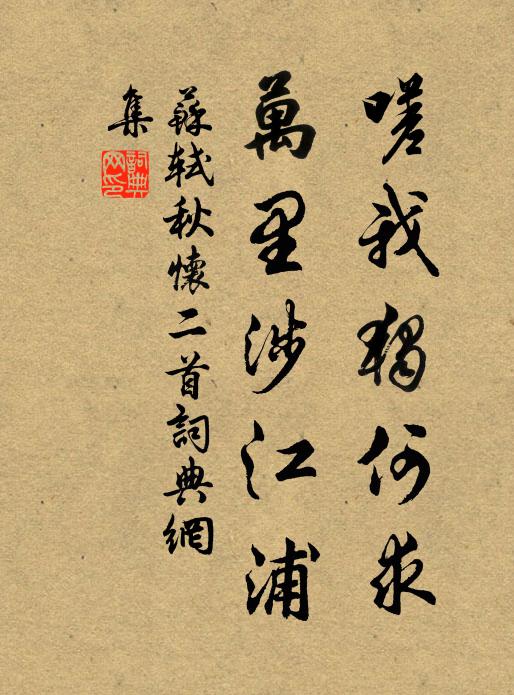 嗟我獨何求
萬里涉江浦
蘇軾秋懷二首詞典網
集
詞典網印